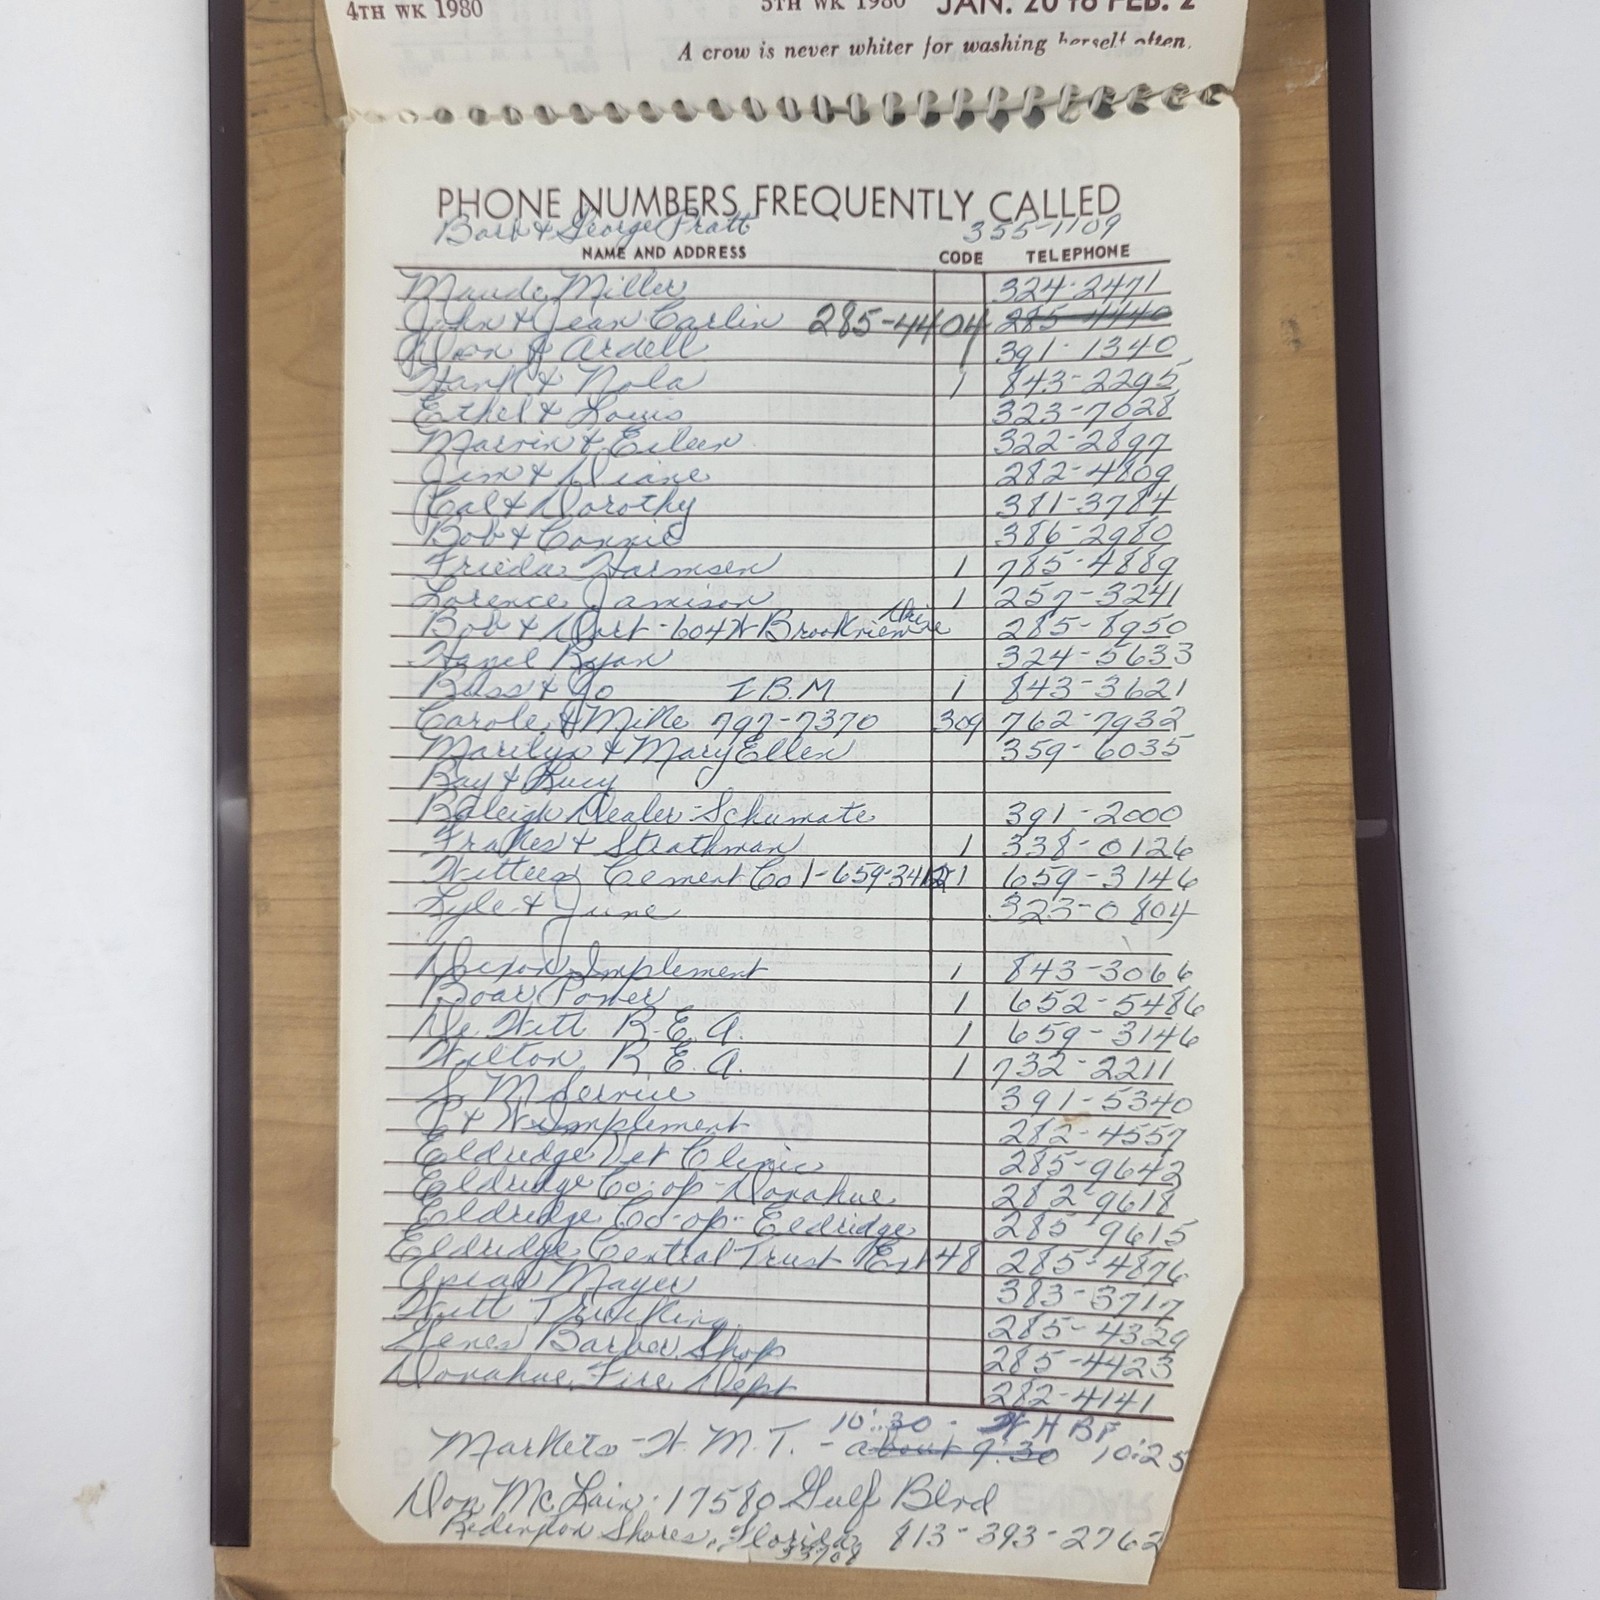 4TH WK 1980 5TH WK 1980 JAN. 20 to FEB. 2
A crow is never whiter for washing herself often.
PHONE NUMBERS FREQUENTLY CALLED
Barb & George Pratt 355-1109
NAME AND ADDRESS CODE TELEPHONE
Maude Miller 324-2471
John & Jean Carlin 285-4404 285-4440
Don & Ardell 391-1340
Hank & Nola 1 843-2295
Ethel & Louis 323-7028
Marvin & Eileen 322-2897
Jim & Diane 282-4809
Cal & Dorothy 381-3784
Bob & Connie 386-2980
Frieda Harmsen 1 785-4889
Lorence Jamison 1 257-3241
Bob & Dort - 604 W Brookview Drive 285-8950
Hazel Ryan 324-5633
Buss & Jo I.B.M 1 843-3621
Carole & Mike 797-7370 309 762-7932
Marilyn & Mary Ellen 359-6035
Ray & Lucy
Raleigh Dealer-Schumate 391-2000
Frakes & Strathman 1 338-0126
Cement Co 1-659-3412 1 659-3146
Lyle & June 323-0804
Dixon Implement 1 843-3066
Boar Power 1 652-5486
De Witt R.E.A. 1 659-3146
Wilton R.E.A. 1 732-2211
S M Service 391-5340
& W Implement 282-4557
Eldredge Vet Clinic 285-9642
Eldredge Co-op - Donahue 282-9618
Eldredge Co-op - Eldridge 285-9615
Eldredge Central Trust Ext 48 285-4876
Mayer 383-3717
Witt Trucking 285-4329
Genes Barber Shop 285-4423
Donahue Fire Dept 282-4141
10:30 - W H B F
Markets - W.M.T. - about 9:30 10:25
Don McLain. 17580 Gulf Blvd
Redington Shores, Florida 813-393-2762
33708